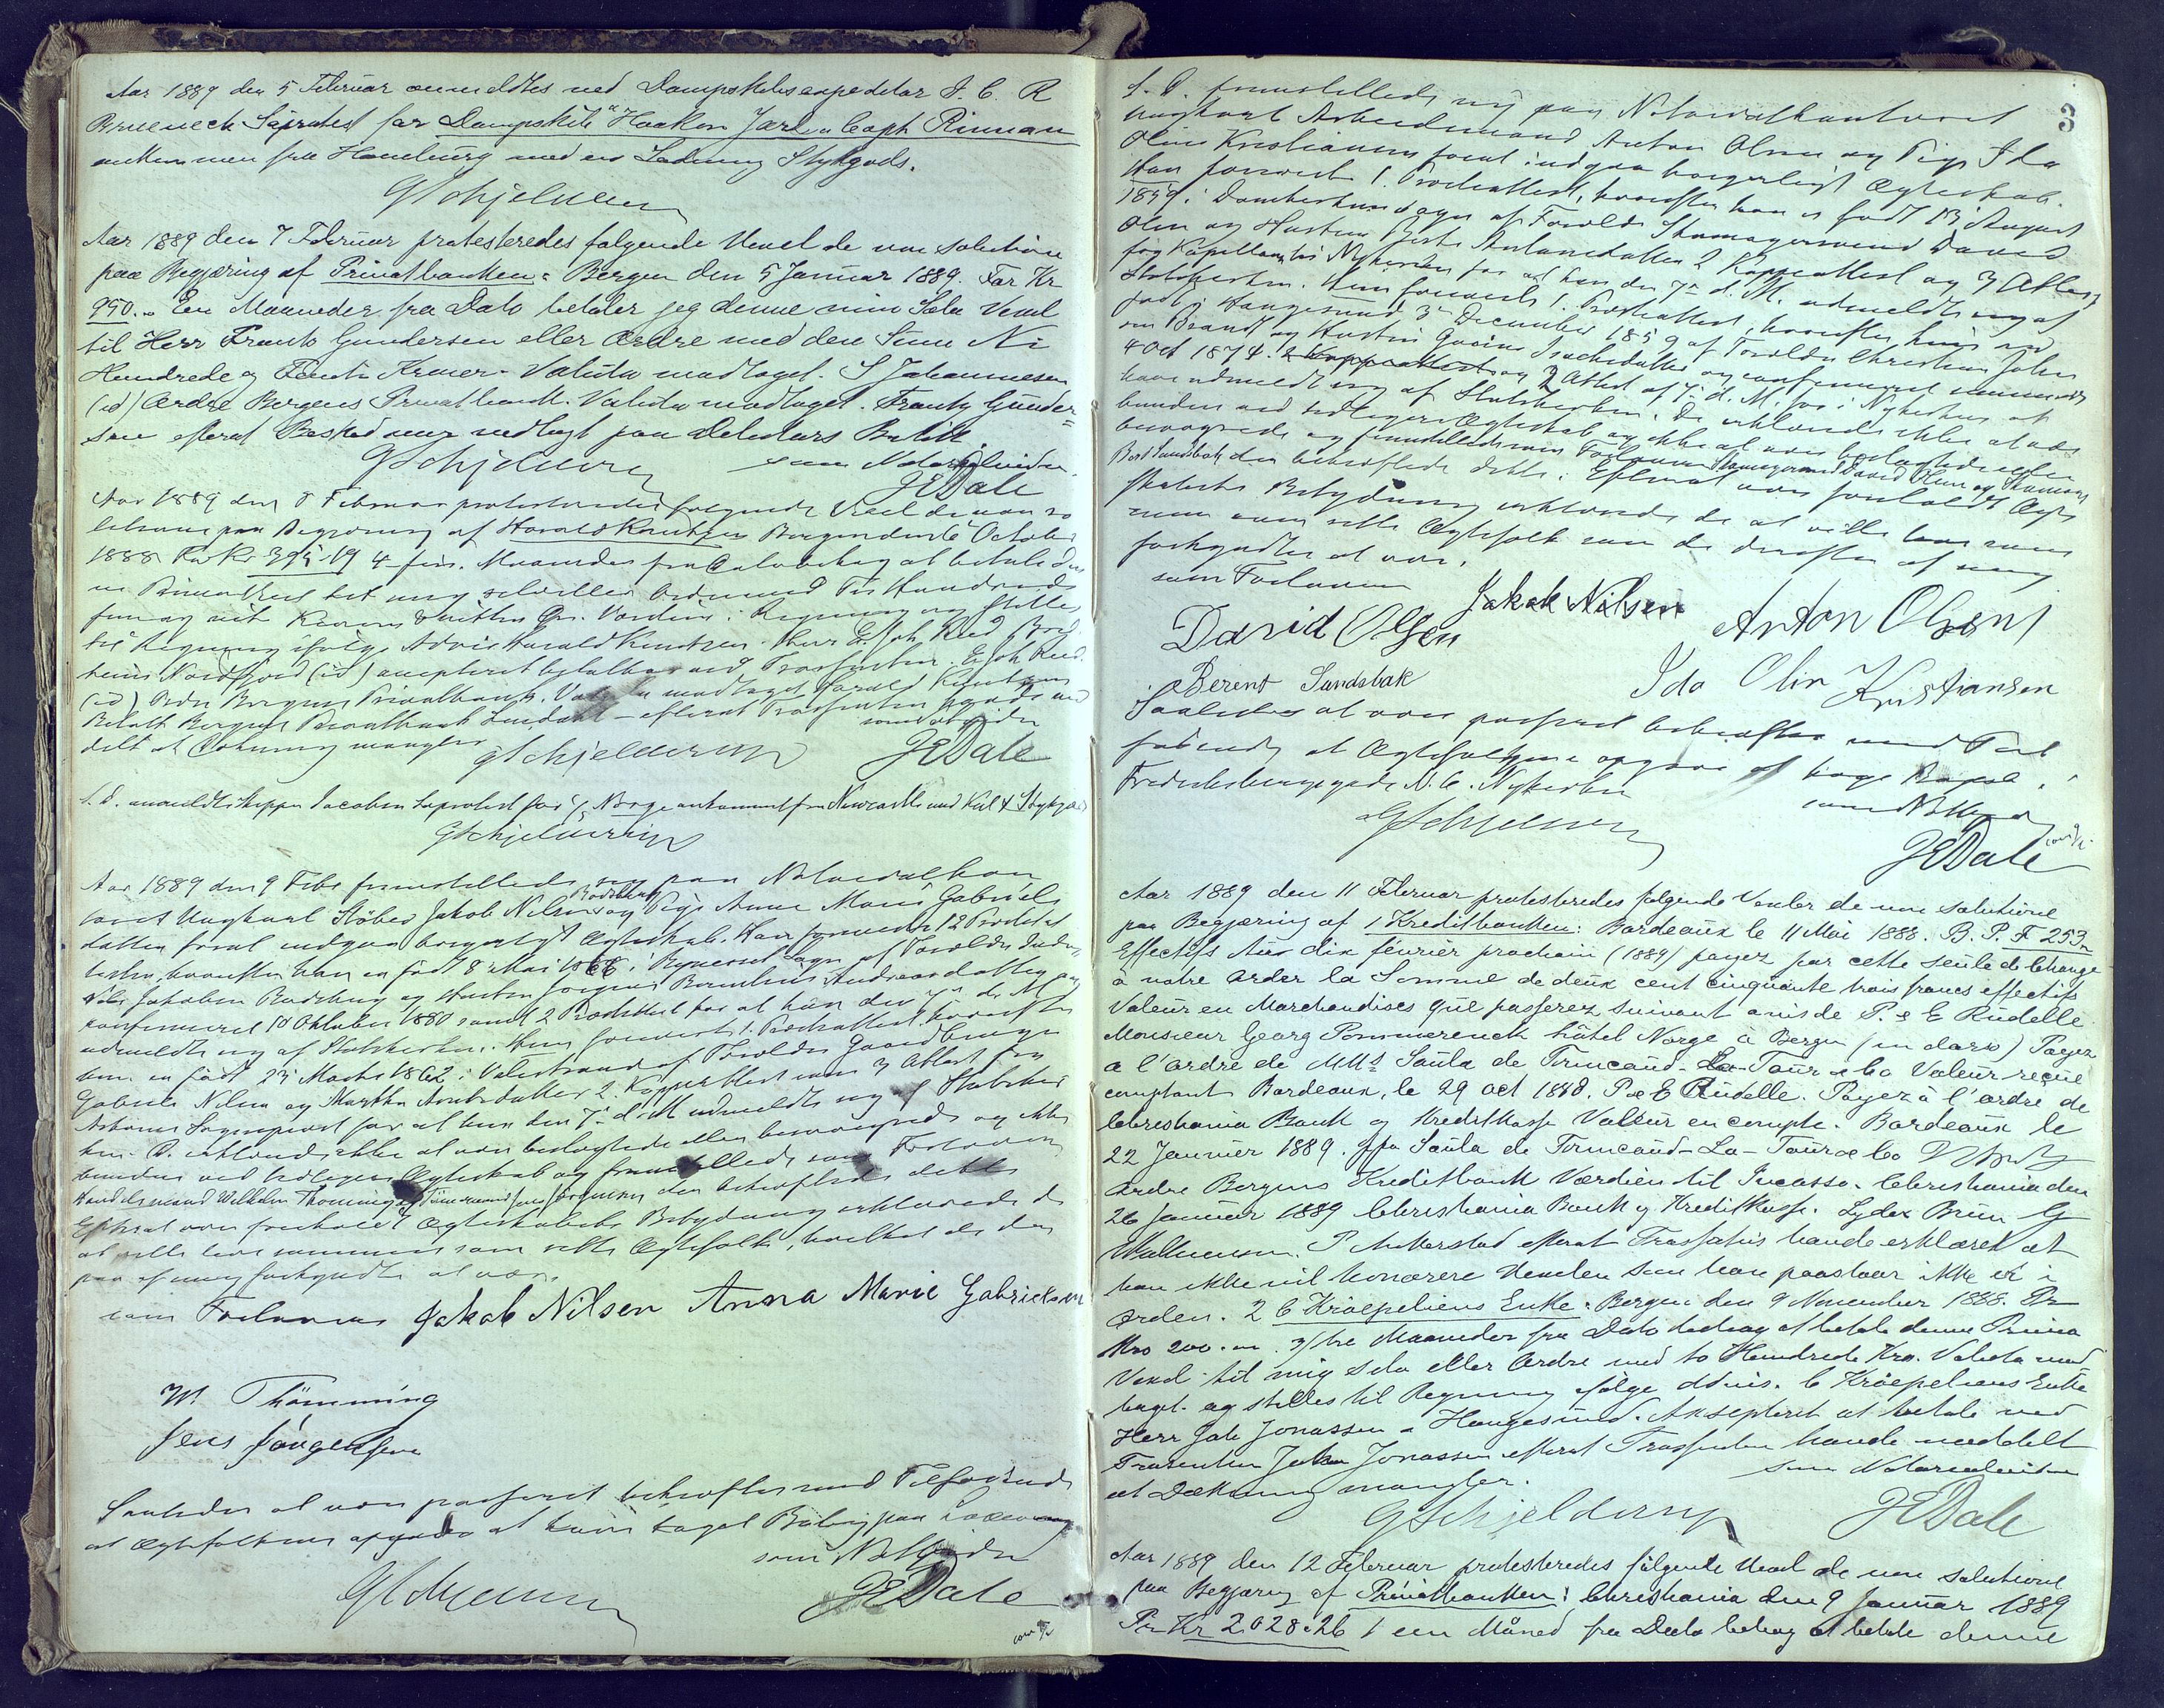 Aar 1889 den 5 Februar anmeldtes ved Dampskibsexpeditør J. C. R
Brueneck Søprotest for Dampskib "Haakon Jarl" Capt Rinnan
ankommen fra Hamburg med en Ladning Stykgods.
GSchjelderup
Aar 1889 den 7 Februar protesteredes følgende Vexel de non solutione
paa Begjæring af Privatbanken: Bergen den 5 Januar 1889. For Kr
950.- Een Maaneder fra Dato betaler jeg denne min Sola Vexel
til Herr Frantz Gundersen eller Ordre med den Sum Ni
Hundrede og Femti Kroner. Valuta modtaget. S Johannesen
(id) Ordre Bergens Privatbank. Valuta modtaget. Frantz Gunder=
sen efterat Besked var nedlagt paa Debitors Butik
GSchjelderup som Notarialvidne
JEDale
Aar 1889 den 8 Februar protesteredes følgende Vexel de non so
lutione paa Begjæring af Harald Knutzen Bergen den 6 October
1888 For Kr 395.19 4 fire Maaneder fra Dato behag at betale denne
Prima Vexel til mig selv eller Ordre med Tre Hundrede
til Regning ifølge Advis Harald Knutzen. Herr E. Joh. Ried
Nordfjord (id) accepteret betalbar ved Trassenten. E Joh Ried.
(id) Ordre Bergens Privatbank. Valuta modtaget Harald Knutzen
Betalt Bergens Privatbank Lindahl - efterat Trassenten havde med
delt at Dækning mangler GSchjelderup JEDale
s. d. anmeldte Skipper Jacobsen Søprotest for S/S Norge ankommet fra Newcastle med Kul & Stykgods
GSchjelderup
Aar 1889 den 9 Febr fremstillede sig paa Notarialkon
toret Ungkarl Støber Jakob Nilsen og Pige Anne Marie Gabriels
datter for at indgaa borgerligt Ægteskab. Han foreviste 1 Præsteattest
hvorefter han er født 8 Mai 1866 i
konfirmeret 10 Oktober 1880 samt 2 Præsteattest for at han den 7de d. M.
udmeldte sig af Statskirken. Hun foreviste 1. Præsteattest hvorefter
hun er født 23 Marts 1862 i Valestrand af Forældre Gaardbruger
Gabriel Nilsen og Martha 2. Koppeattest samt 3 Attest fra
Sognepræst for at hun den 7de d. M. udmeldte sig af Statskir
ken. De erklærede ikke at være beslægtede eller besvogrede og ikke
bundne ved tidligere Ægteskab og fremstillede som Forlovere
Handelsmand Wilhelm Thömming og Jens Jörgensen der bekræftede dette
Efterat være foreholdt Ægteskabets Betydning erklærede de
at ville leve sammen som rette Ægtefolk, hvilket de der
paa af mig forkyndtes at være.
som Forlovere Jakob Nilsen Anna Marie Gabrielsen
W. Thömming
Jens Jörgensen
Saaledes at være passeret bekræftes med Tilføiende
at Ægtefolkene opgaver at have taget Bolig paa Laxevaag
som NotVidne
GSchjelderup JEDale
3
S. D. fremstillede sig paa Notarialkontoret
Ungkarl Arbeidsmand Anton Olsen og Pige Ida
Oline Kristiansen for at indgaa borgerligt Ægteskab.
Han foreviste 1. Præsteattest, hvorefter han er født 13 August
1859 i Domkirkens Sogn af Forældre Skomagersvend David
Olsen og Hustru 2 Koppeattest og 3 Attest
fra Kapellanen til Nykirken for at han den 7de d. M. udmeldte sig af
Statskirken. Hun foreviste 1. Præsteattest, hvorefter hun er
født i Haugesund 3de December 1859 af Forældre Christian John
4 Oct 1874. 2 Koppeattest og 3 Attest af 7de d. M. for i Nykirken at
have udmeldt sig af Statskirken. De erklærede ikke at være
bundne ved tidligere Ægteskab og ikke at være beslægtede eller
besvogrede og fremstillede som Forlovere Skomagersvend David Olsen og
Bert Sandsbak der bekræftede dette. Efterat være foreholdt Ægte
skabets Betydning erklærede de at ville leve sam
men som rette Ægtefolk som de derefter af mig
forkyndtes at være.
som Forlovere
David Olsen Jakob Nilsen Anton Olsen
Berent Sandsbak Ida Olin Kristiansen
Saaledes at være passeret bekræftes med Til
føiende at Ægtefolkene opgave at have Bopæl i
Frederiksbergsgade N. 6. Nykirken
som NotVidne
GSchjelderup
JEDale
Aar 1889 den 11 Februar protesteredes følgende Vexler de non solutione
paa Begjæring af 1 Kreditbanken: Bordeaux le 11 Mai 1888. B. P. F 253
Effectifs Au dix février prochain (1889) payez par cette seule de Change
à notre order la Somme de deux cent cinquante trois francs effectifs
Valeur en Marchandises que passerez suivant avis de P. & E Rudelle
Monsieur Georg Pommerenck hôtel Norge à Bergen (en dorso) Payez
a l'ordre de MMs Saula de Trincaud-La-Tour & Co Valeur reçue
comptant Bordeaux, le 29 oct 1888. P & E Rudelle. Payez à l'ordre de
Christiania Bank og Kreditkasse Valeur en compte. Bordeaux le
22 Janvier 1889. ppa Saula de Trincaud-La-Tour & Co
Ordre Bergens Kreditbank Værdien til Incasso. Christiania den
26 Januar 1889 Christiania Bank og Kreditkasse. Lyder Brun
P Ankerstad efterat Trassatus havde erklæret at
han ikke vil honorere Vexelen som han paastaar ikke er i
Orden. 2 C Kroepeliens Enke: Bergen den 9 November 1888. Pr
Kro 200.- 3/tre Maaneder fra Dato behag at betale denne Prima
Vexel til mig selv eller Ordre med to Hundrede Kro. Valuta mod
taget og stilles til Regning ifølge Advis. C Kröepeliens Enke
Herr Joh Jonassen - Haugesund. Aksepteret at betale ved
Trasenten Johan Jonassen efterat Trassenten havde meddelt
at Dækning mangler. som Notarialvidne
GSchjelderup JEDale
Aar 1889 den 12 Februar protesteredes følgende Vexel de non solutione
paa Begjæring af Privatbanken: Christiania den 9 Januar 1889
Pr Kr 2028.26 1 een Måned fra Dato behag at betale denne